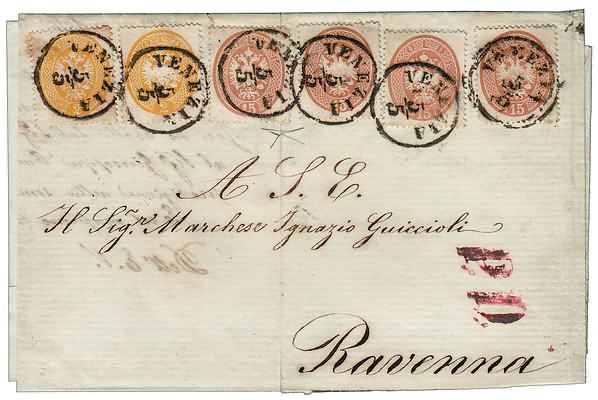 VENEZIA 5/5
VENEZIA 5/5
VENEZIA 5/5
VENEZIA 5/5
VENEZIA 5/5
VENEZIA 5/5
15
15
15
A S. E.
Il Sigr. Marchese Ignazio Guiccioli
PD
Ravenna